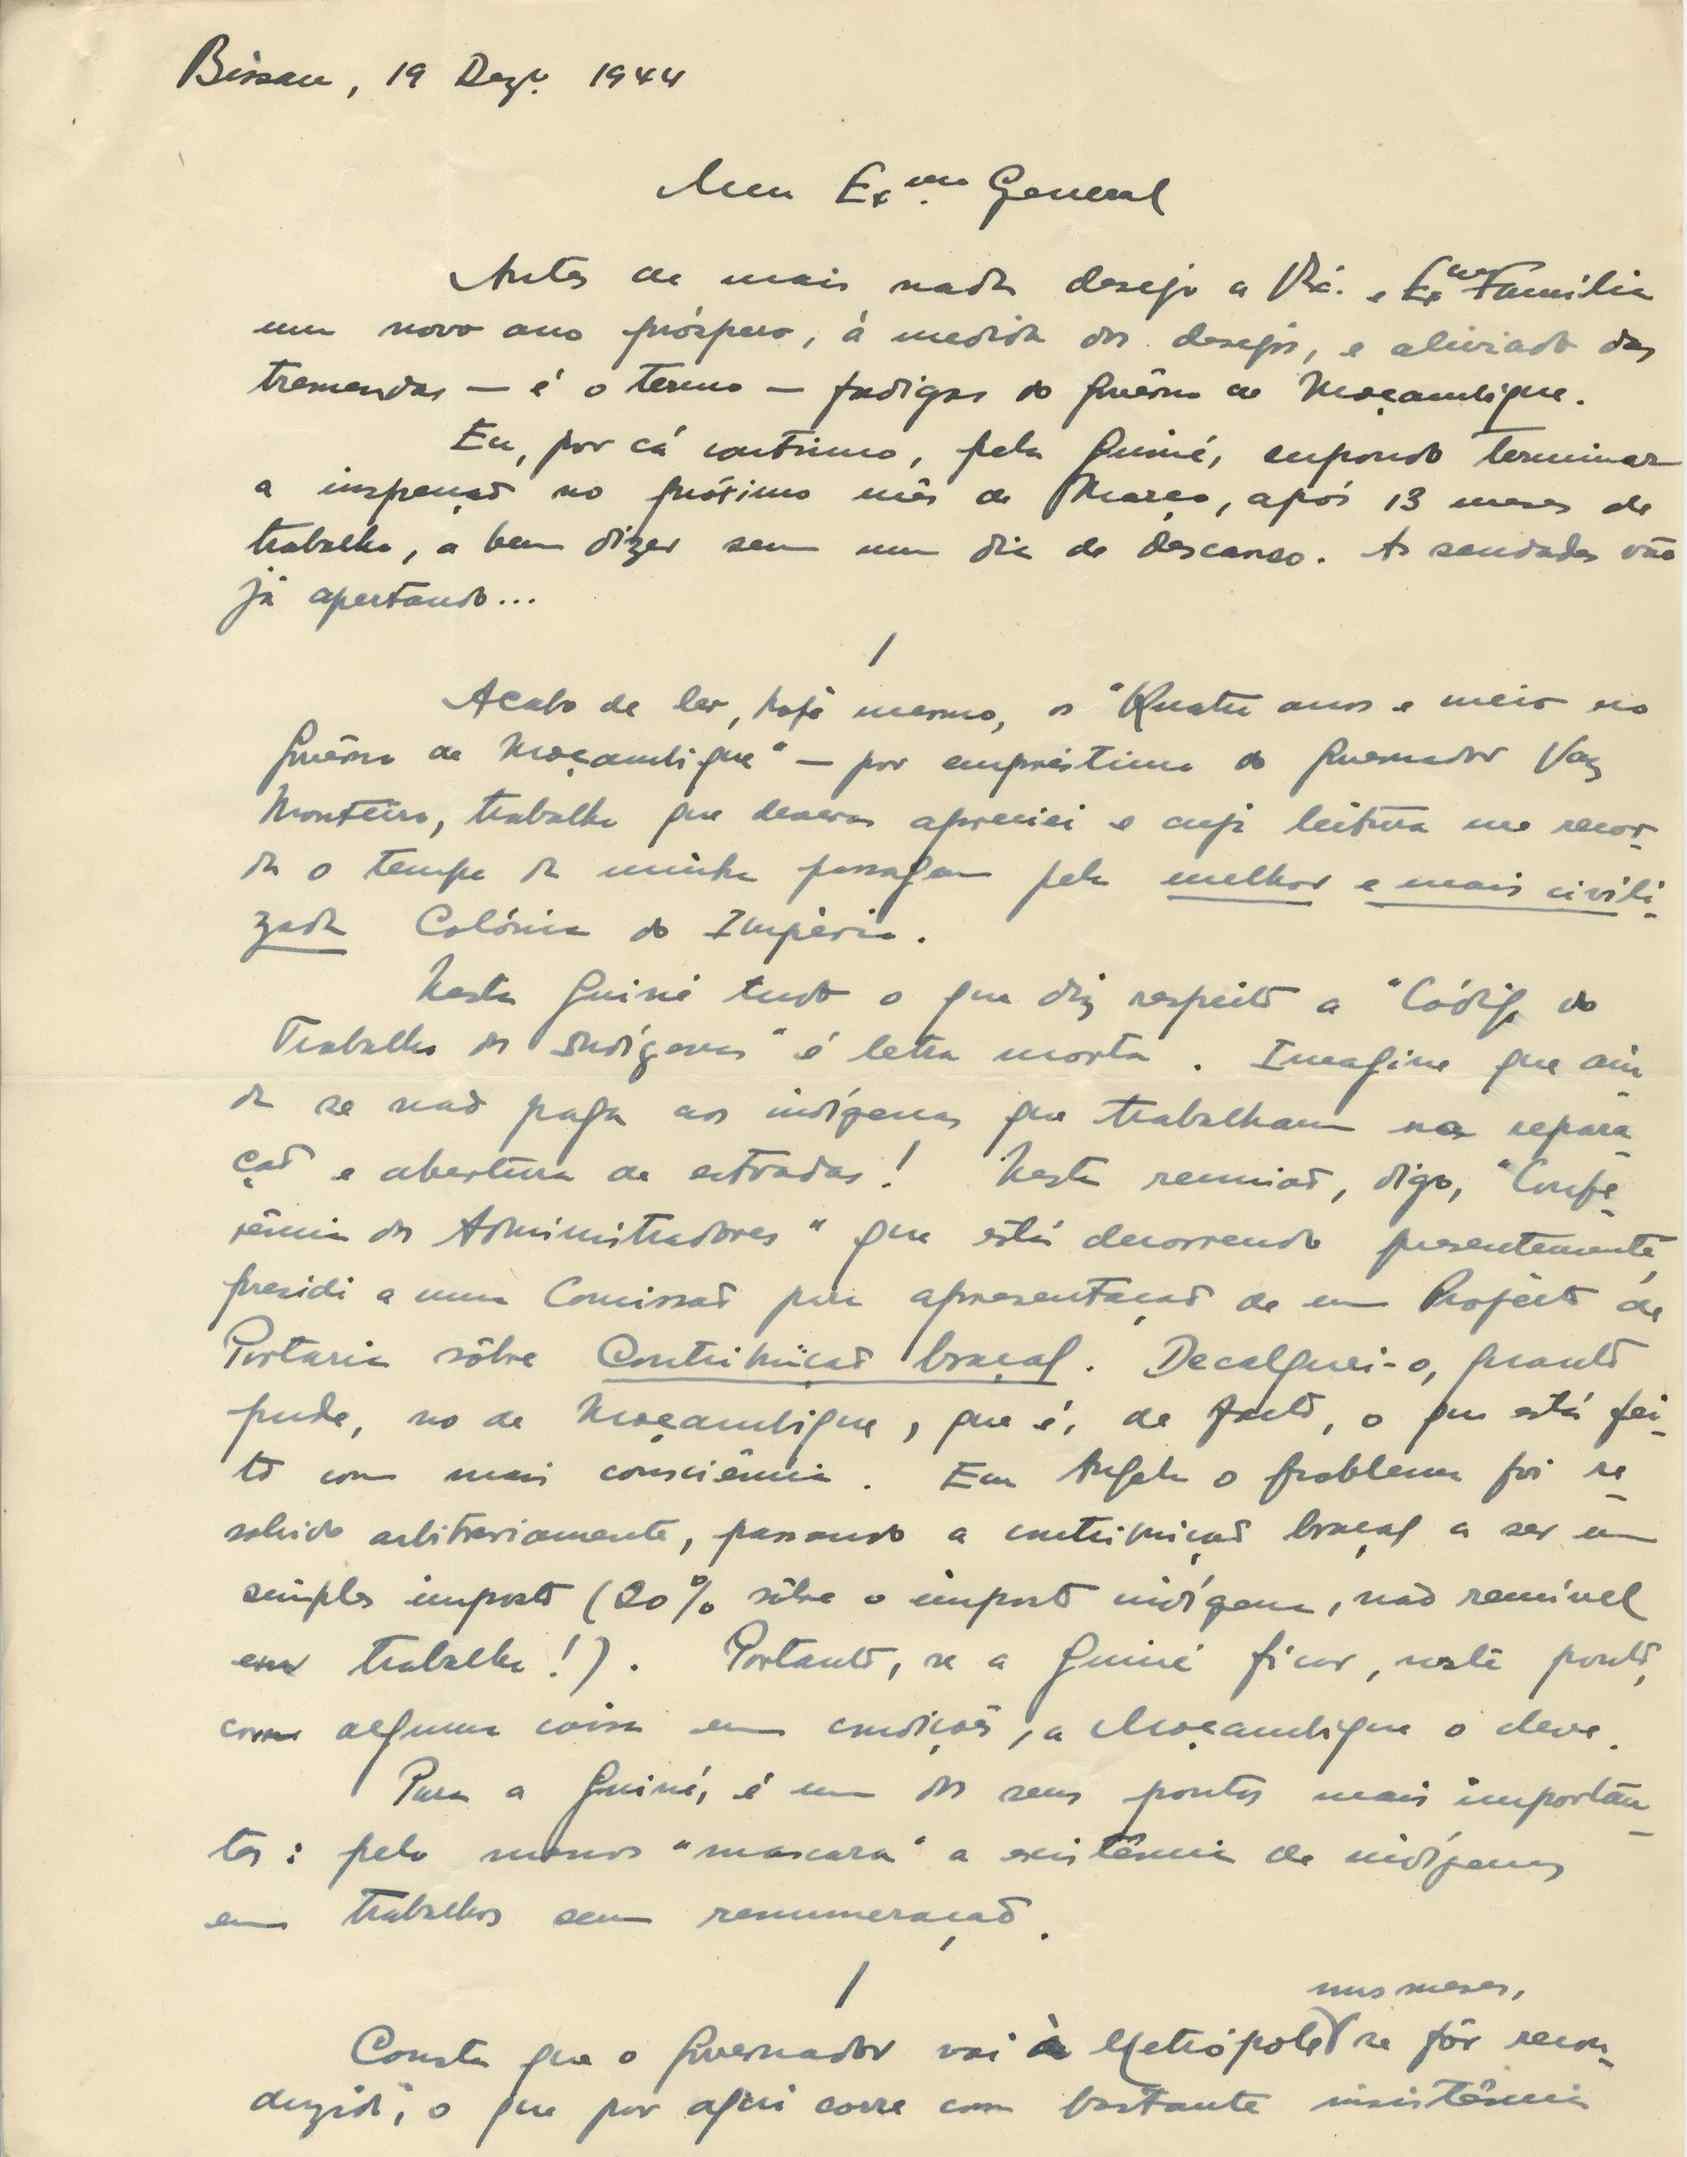 Bissau, 19 Dezº. 1944
Meu Exmo. General
Antes de mais nada desejo a V. Ex.ª e Exma Família
um novo ano próspero, à medida dos desejos, e aliviado das
tremendas — é o termo — fadigas do Govêrno de Moçambique.
Eu, por cá continuo, pela Guiné, supondo terminar
a inspecção no próximo mês de Março, após 13 meses de
trabalho, a bem dizer sem um dia de descanso. As saudades vão
já apertando...
/
Acabo de ler, hoje mesmo, os "Quatro anos e meio no
Govêrno de Moçambique" — por empréstimo do Governador Vaz
Monteiro, trabalho que deveras apreciei e cuja leitura me recor-
da o tempo da minha passagem pela melhor e mais civili-
zada Colónia do Império.
Nesta Guiné tudo o que diz respeito a "Código do
Trabalho dos Indígenas" é letra morta. Imagine que ain-
da se não paga aos indígenas que trabalham na repara-
ção e abertura de estradas! Nesta reunião, digo, "Confe-
rência dos Administradores" que está decorrendo presentemente,
presidi a uma Comissão para apresentação de um Projecto de
Portaria sôbre Contribuição braçal. Decalquei-o, quanto
pude, no de Moçambique, que é, de facto, o que está fei-
to com mais consciência. Em Angola o problema foi re-
solvido arbitrariamente, passando a contribuição braçal a ser um
simples imposto (20% sôbre o imposto indígena, não remível
em trabalho!). Portanto, se a Guiné ficar, neste ponto,
com alguma coisa em condições, a Moçambique o deve.
Para a Guiné, é um dos seus pontos mais importan-
tes: pelo menos "mascara" a existência de indígenas
em trabalhos sem remuneração.
/
uns meses,
Consta que o Governador vai à Metrópole se fôr recon-
duzido, o que por aqui corre com bastante insistência